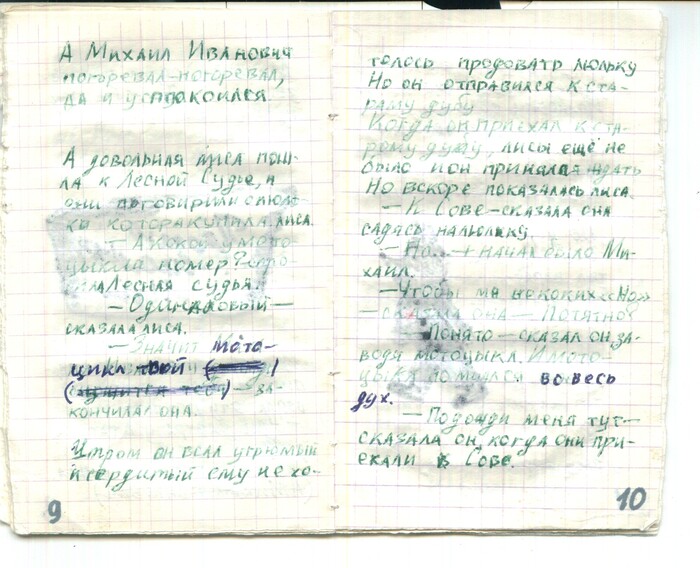 А Михаил Иванович
погоревал-погоревал,
да и успокоился.
А довольная лиса пош-
ла к Лесной Судье, и
они поговорили о люль-
ки котора купила лиса.
— А какой у мото-
цыкла номер?
Лесная судья.
— Одинаковый —
сказала лиса.
— Значит Мото-
цикл твой
за-
кончила она.
Утром он встал угрюмый
и сердитый ему не хо-
9
телось продовать люльку
Но он отправился к ста-
раму дубу
Когда он приехал к ста-
рому дубу, лисы ещё не
было и он принялся ждать
Но вскоре показалась лиса.
— К Сове — сказала она
садясь на люльку.
— Но... — начал было Ми-
хаил.
— Чтобы мн некоких «Но»
— сказала она — Потятно?
Понято — сказал он, за-
водя мотоцыкл. И мото-
цыкл помчался во весь
дух.
— Подожди меня тут —
сказала он, когда они при-
ехали к Сове.
10